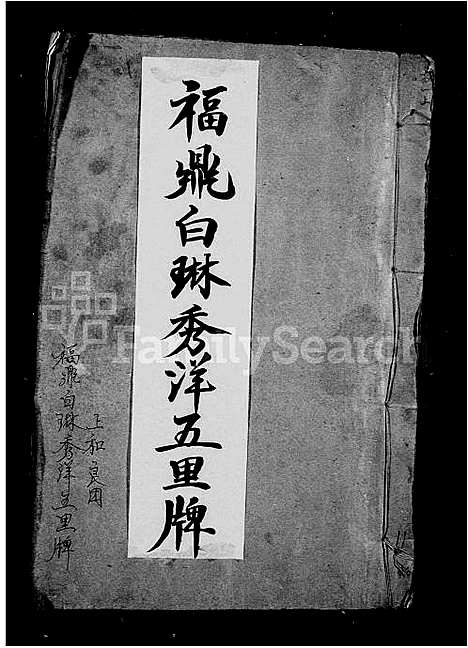 福鼎白琳秀洋五里牌
上和良田
福鼎白琳秀洋五里牌
FamilySearch